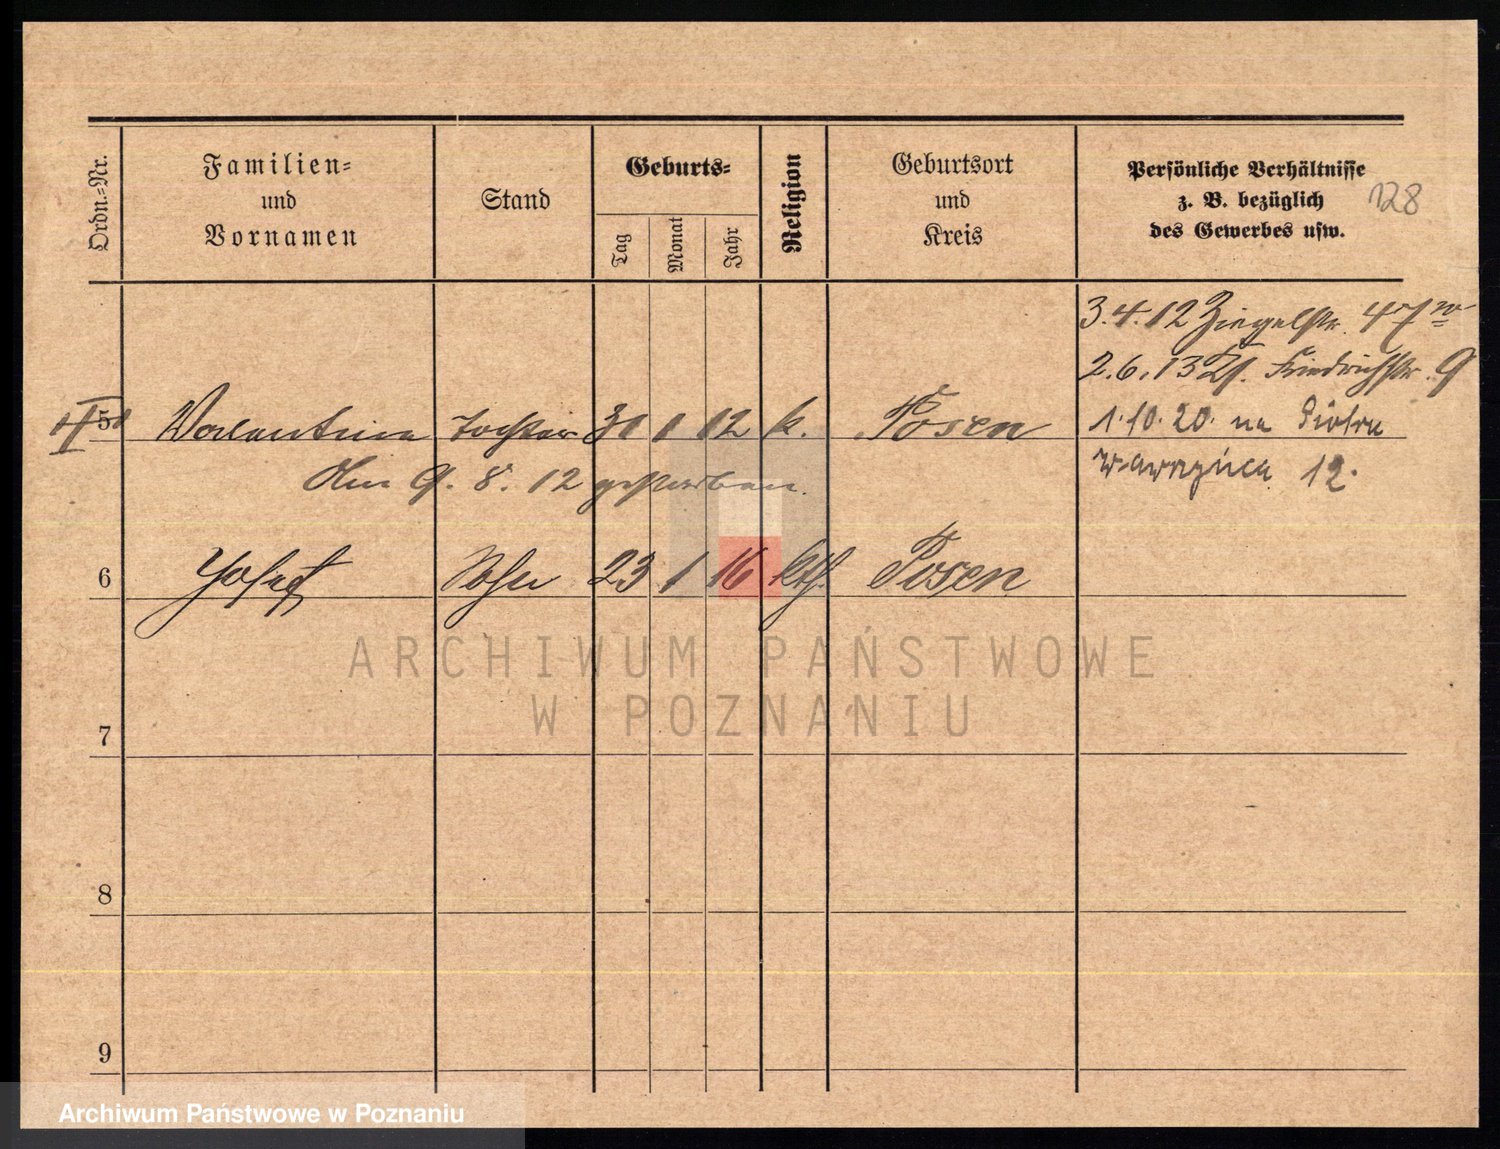 Ordn.-Nr.
Familien-
und
Vornamen
Stand
Geburts-
Tag
Monat
Jahr
Religion
Geburtsort
und
Kreis
Persönliche Verhältnisse
z. B. bezüglich
des Gewerbes usw.
128
3.4.12 Ziegelstr. 47
2.6.13 Friedrichstr. 9
5 Valentina Tochter 31 1 12 k. Posen
1.10.20. na Piotra
Wawrzyńca 12.
Am 9. 8. 12 gestorben.
6 Josef Sohn 23 1 16 kth. Posen
7
8
9
ARCHIWUM PAŃSTWOWE
W POZNANIU
Archiwum Państwowe w Poznaniu